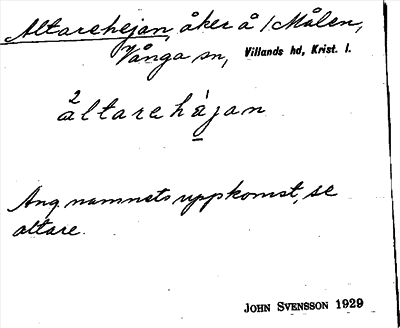 Altarehejan, åker å /Målen,
Vånga sn, Villands hd, Krist. l.
2
altarehàjan
Ang. namnets uppkomst, se
altare.
JOHN SVENSSON 1929